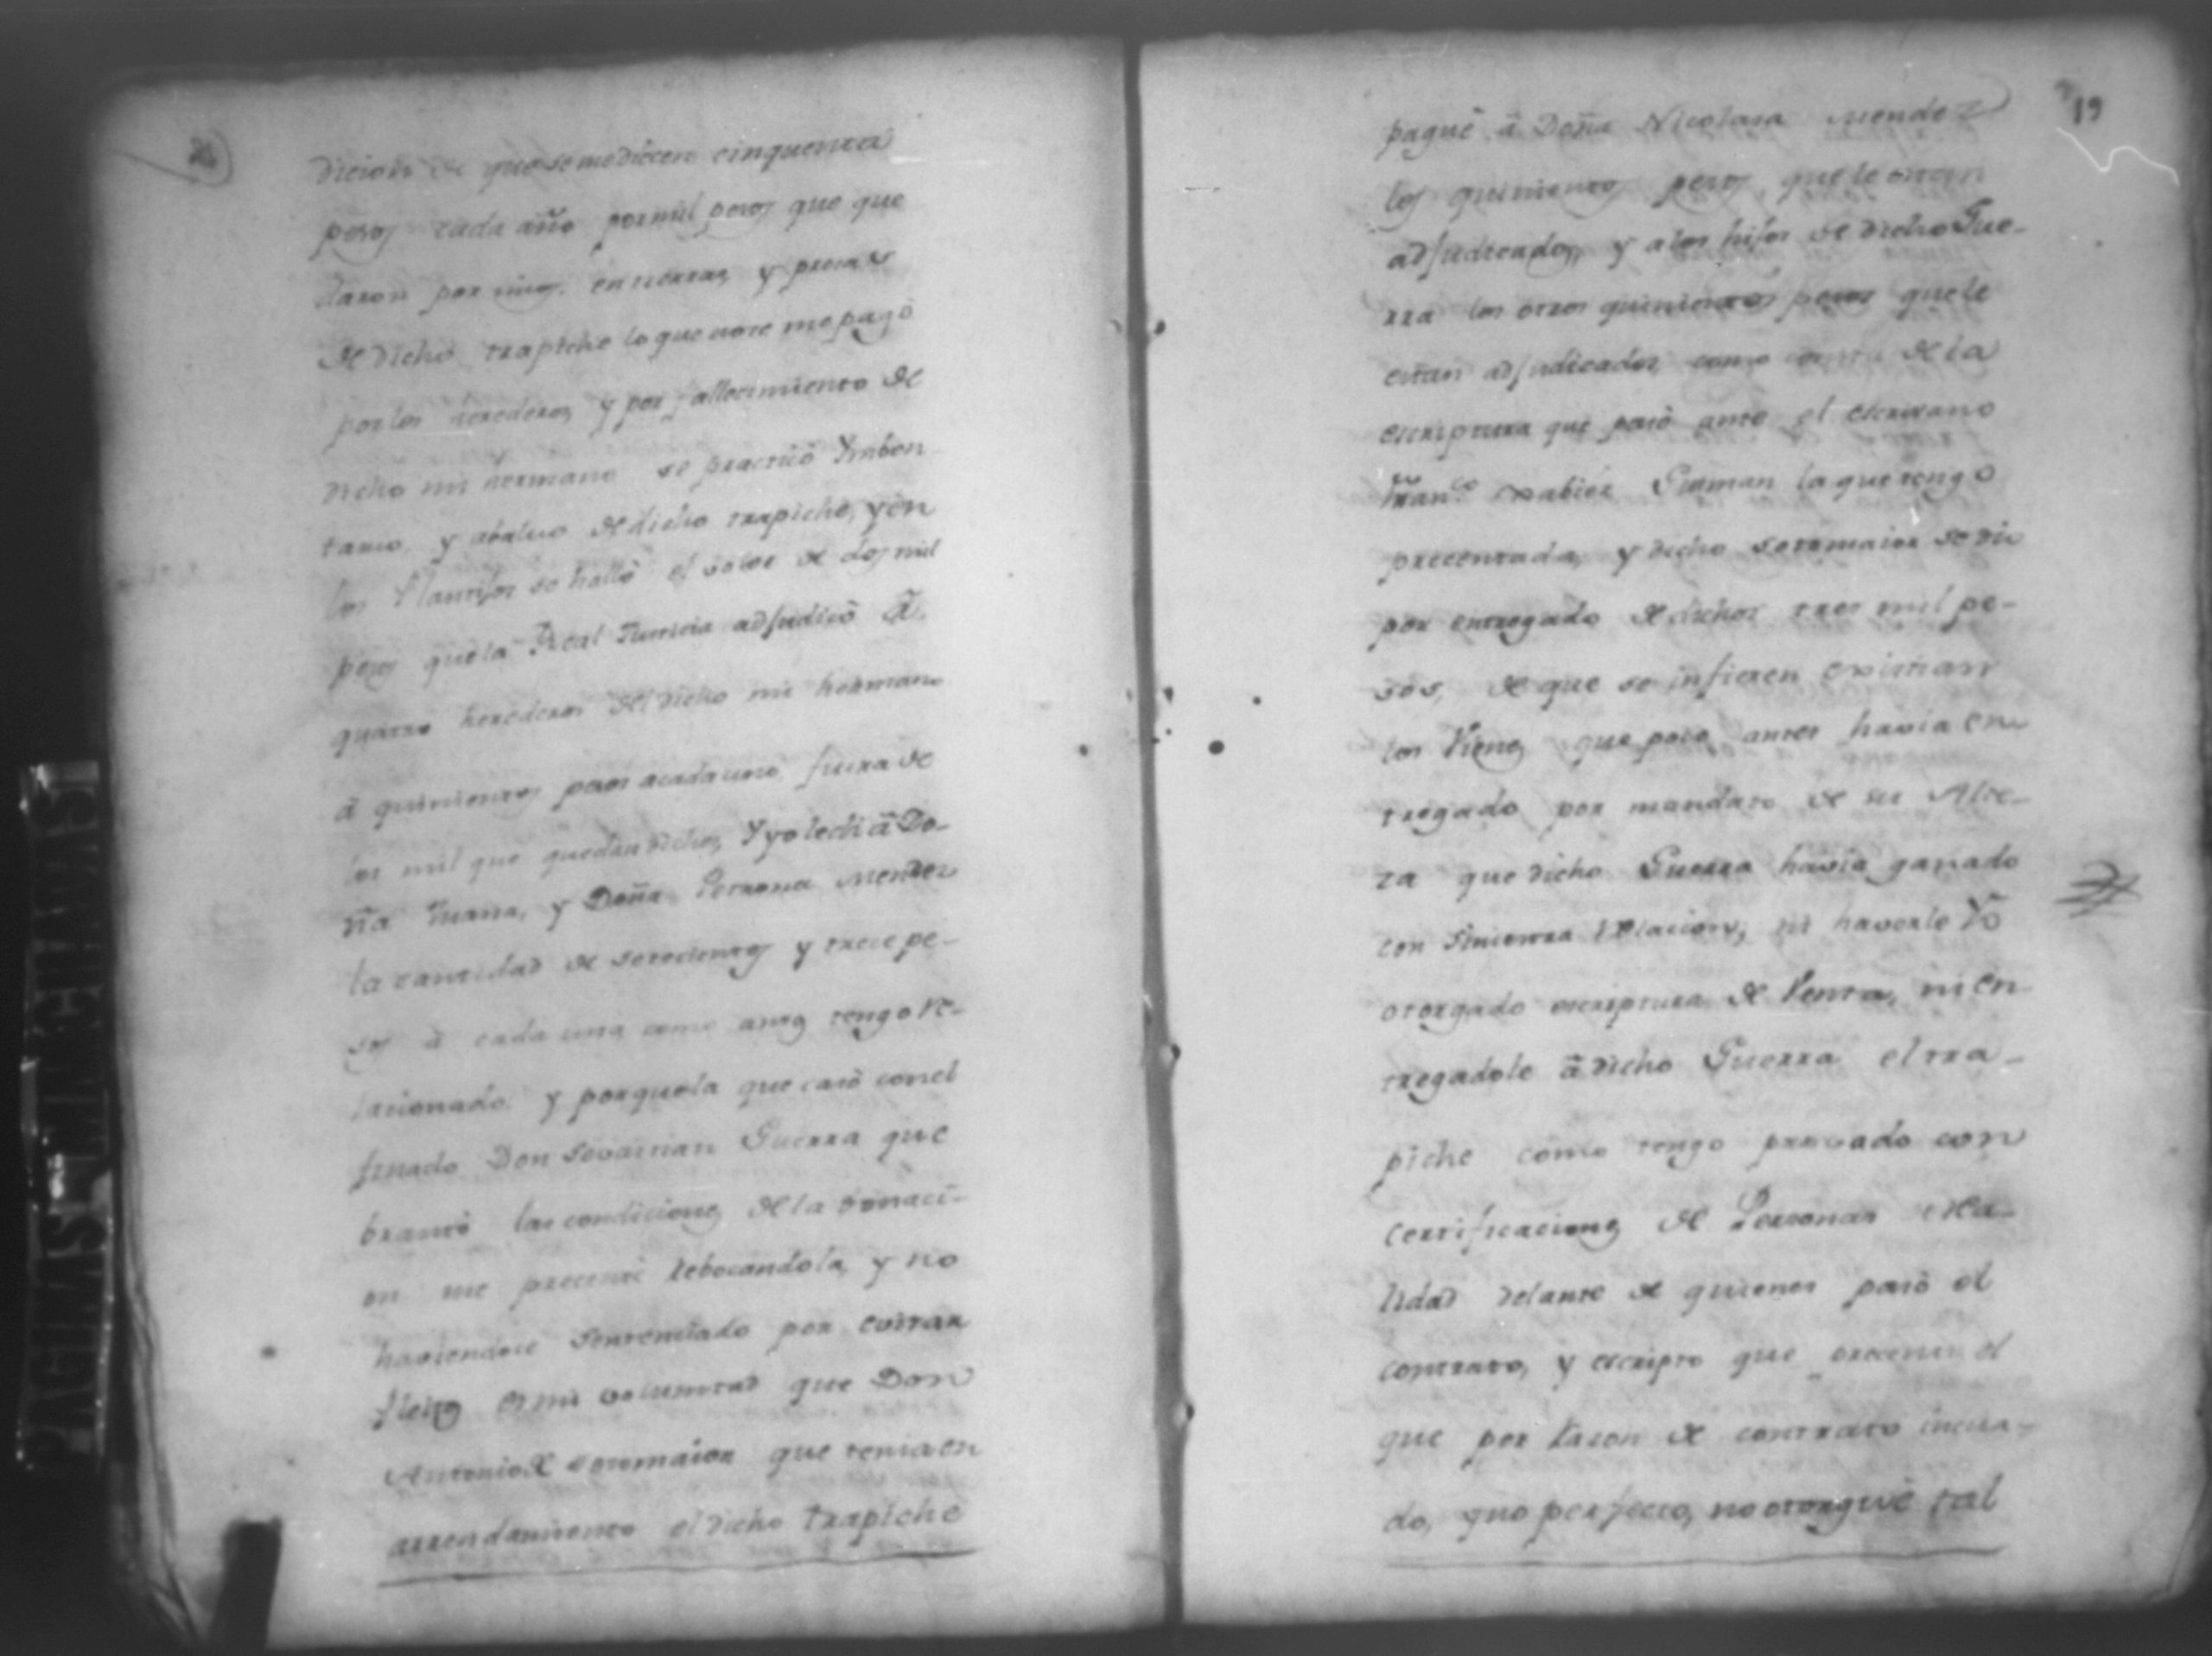 dicion de que se me diecen cinquenta
pesos cada año por mil pesos que que
daron por mios en tierras, y piezas
de dicho trapiche lo que no se me pagò
por los herederos, y por fallecimiento de
dicho mi hermano se practicò Ymben
tario, y abaluo de dicho trapiche, y en
los Plantijos se hallò el valor de dos mil
pesos que la Real Justicia adjudicò à
quatro herederos del dicho mi hermano
à quinientos pesos a cada uno, fuera de
los mil que quedan dichos, Y yo le di à Do-
ña Juana, y Doña Petrona Mendez
la cantidad de setecientos y trece pe-
sos à cada una como antes tengo re-
lacionado, y porque la que casò con el
finado Don Sevastian Guerra que
brantò las condiciones de la Donaci-
on me precentè rebocandola, y no
haviendose sentenciado por evitar
Pleitos es mi voluntad que Don
Antonio de Sotomaior que tenia en
arrendamiento el dicho trapiche
19
paguè à Doña Nicolasa Mendez
los quinientos pesos que le estan
adjudicados, y a los hijos de dicho Gue-
rra los otros quinientos pesos que le
estan adjudicados como consta de la
escriptura que pasò ante el escrivano
Franco. Xabier Guzman la que tengo
precentada, y dicho Sotomaior se dio
por entregado de dichos tres mil pe-
sos, de que se infieren existian
los Vienes que poco antes havia en
tregado por mandato de su Alte-
za que dicho Guerra havia ganado
con Siniestra relacion, sin haverle Yo
otorgado escriptura de Venta, ni en
tregadole à dicho Guerra el tra-
piche como tengo provado con
certificaciones de Personas de ca-
lidad delante de quienes pasò el
contrato, y escripto que precentè el
que por razon de contrato incua-
do, y no perfecto, no otorguè tal